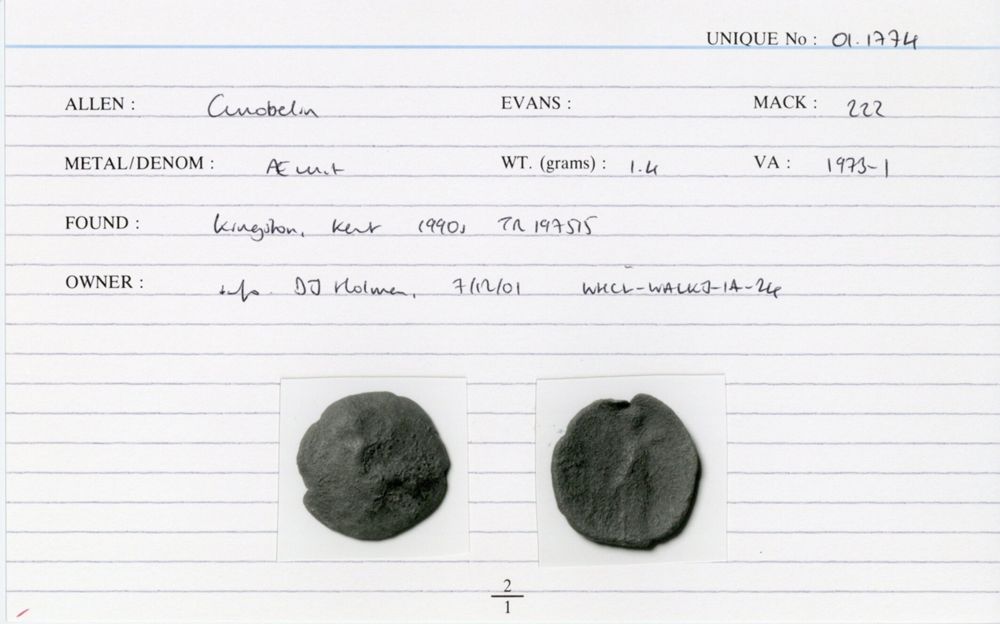 UNIQUE No : 01.1774
ALLEN : Cunobelin EVANS : MACK : 222
METAL/DENOM : Æ unit WT. (grams) : 1.4 VA : 1973-1
FOUND : Kingston, Kent 1990s TR 197515
OWNER : info. DJ Holman, 7/12/01 WHCL-WALKJ-IA-24
2
1